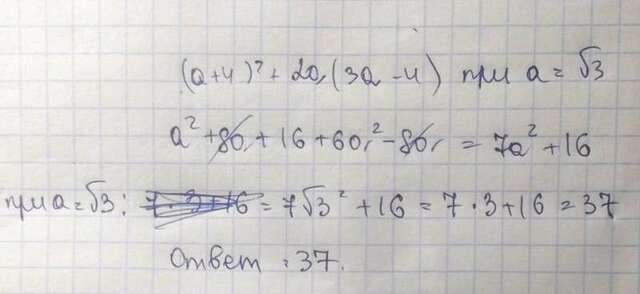 (a+4)² + 2a(3a-4) при a = √3
a² + 8a + 16 + 6a² - 8a = 7a² + 16
при a = √3: 7·3+16 = 7√3² + 16 = 7·3 + 16 = 37
Ответ: 37.